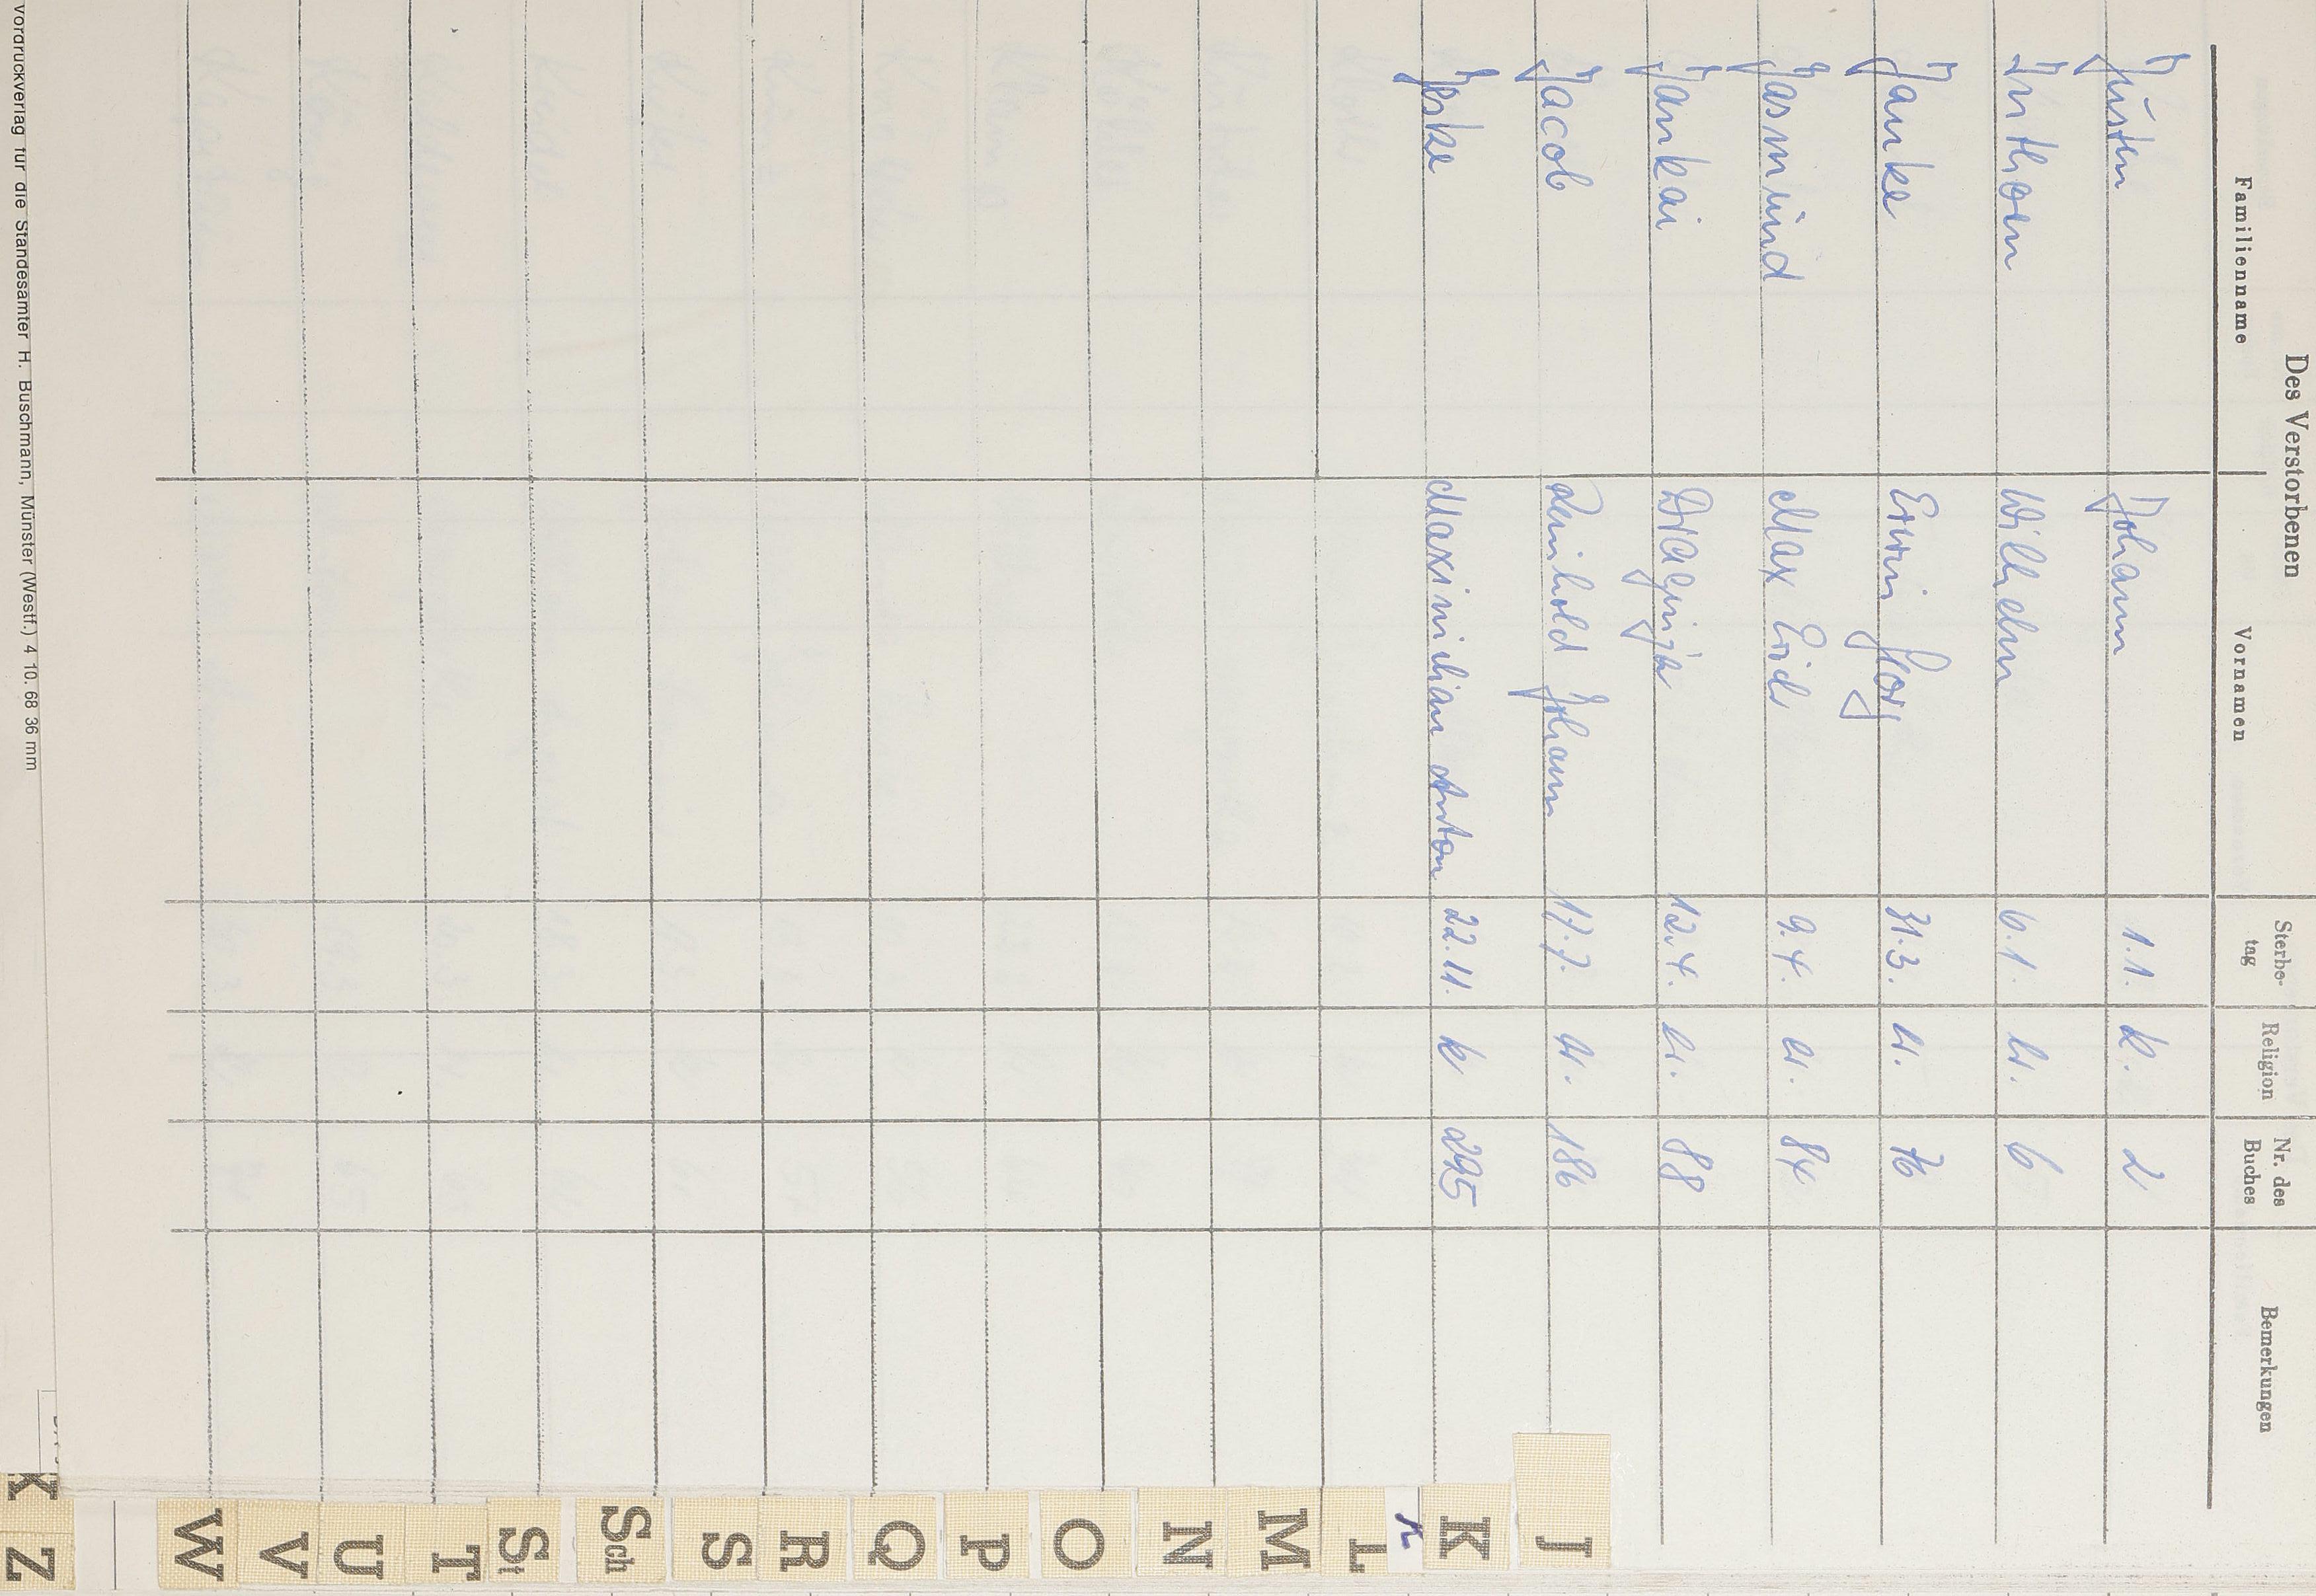 Des Verstorbenen
Familienname Vornamen Sterbe- tag Religion Nr. des Buches Bemerkungen
Justen Johann 1.1. k. 2
Inthoen Wilhelm 6.1. ev. 6
Janke Erwin Georg 31.3. ev. 76
Jasmund Max Erich 9.4. ev. 84
Jankai 12.4. ev. 88
Jacob Reinhold Johann 17.7. ev. 186
Jeske Maximilian Anton 22.11. k 295
Vordruckverlag für die Standesämter H. Buschmann, Münster (Westf.) 4 10. 68 36 mm
J
K
L
M
N
O
P
Q
R
S
Sch
St
T
U
V
W
Z